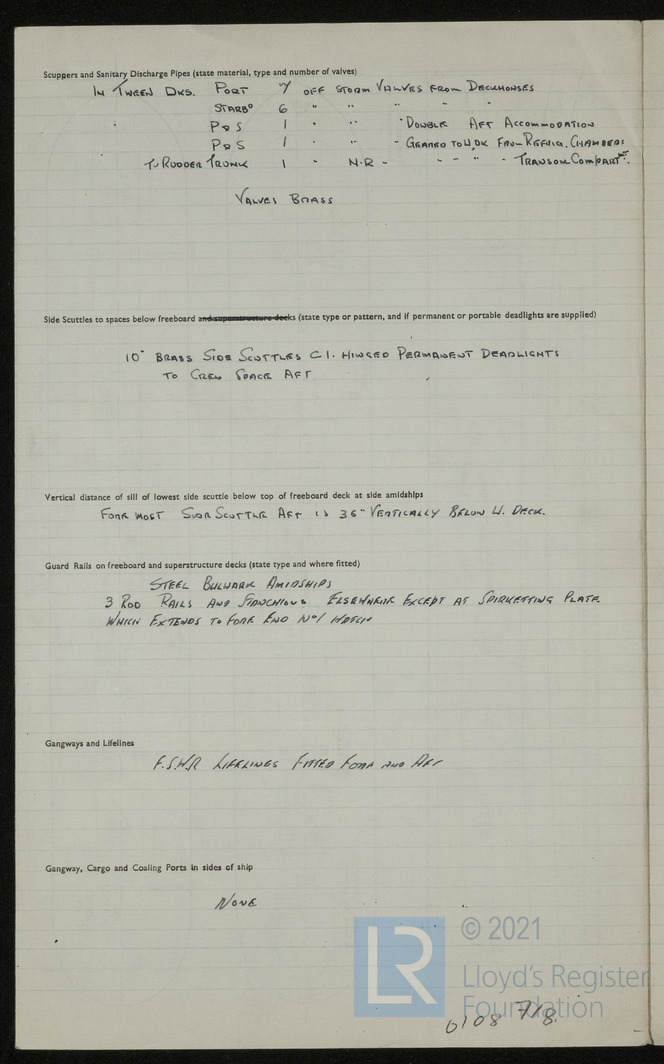 Scuppers and Sanitary Discharge Pipes (state material, type and number of valves)
IN TWEEN DKS. PORT 7 OFF STORM VALVES FROM DECKHOUSES
STARBD 6 " " " " "
P & S 1 " " " DOUBLE AFT ACCOMMODATION
P & S 1 " " " GEARED TO W.DK FROM REFRIG. CHAMBERS
TO RUDDER TRUNK 1 " N.R - " " " " TRANSOM COMPARTT.
VALVES BRASS
Side Scuttles to spaces below freeboard and superstructure decks (state type or pattern, and if permanent or portable deadlights are supplied)
10" BRASS SIDE SCUTTLES C.I. HINGED PERMANENT DEADLIGHTS
TO CREW SPACE AFT
Vertical distance of sill of lowest side scuttle below top of freeboard deck at side amidships
FORE MOST SIDE SCUTTLE AFT IS 36" VERTICALLY BELOW U. DECK.
Guard Rails on freeboard and superstructure decks (state type and where fitted)
STEEL BULWARK AMIDSHIPS
3 ROD RAILS AND STANCHIONS ELSEWHERE EXCEPT AT SPIRKETTING PLATE
WHICH EXTENDS TO FORE END No1 HATCH
Gangways and Lifelines
F.S.W.R LIFELINES FITTED FORE AND AFT
Gangway, Cargo and Coaling Ports in sides of ship
NONE
LR
© 2021
Lloyd's Register
Foundation
0108 7/8.